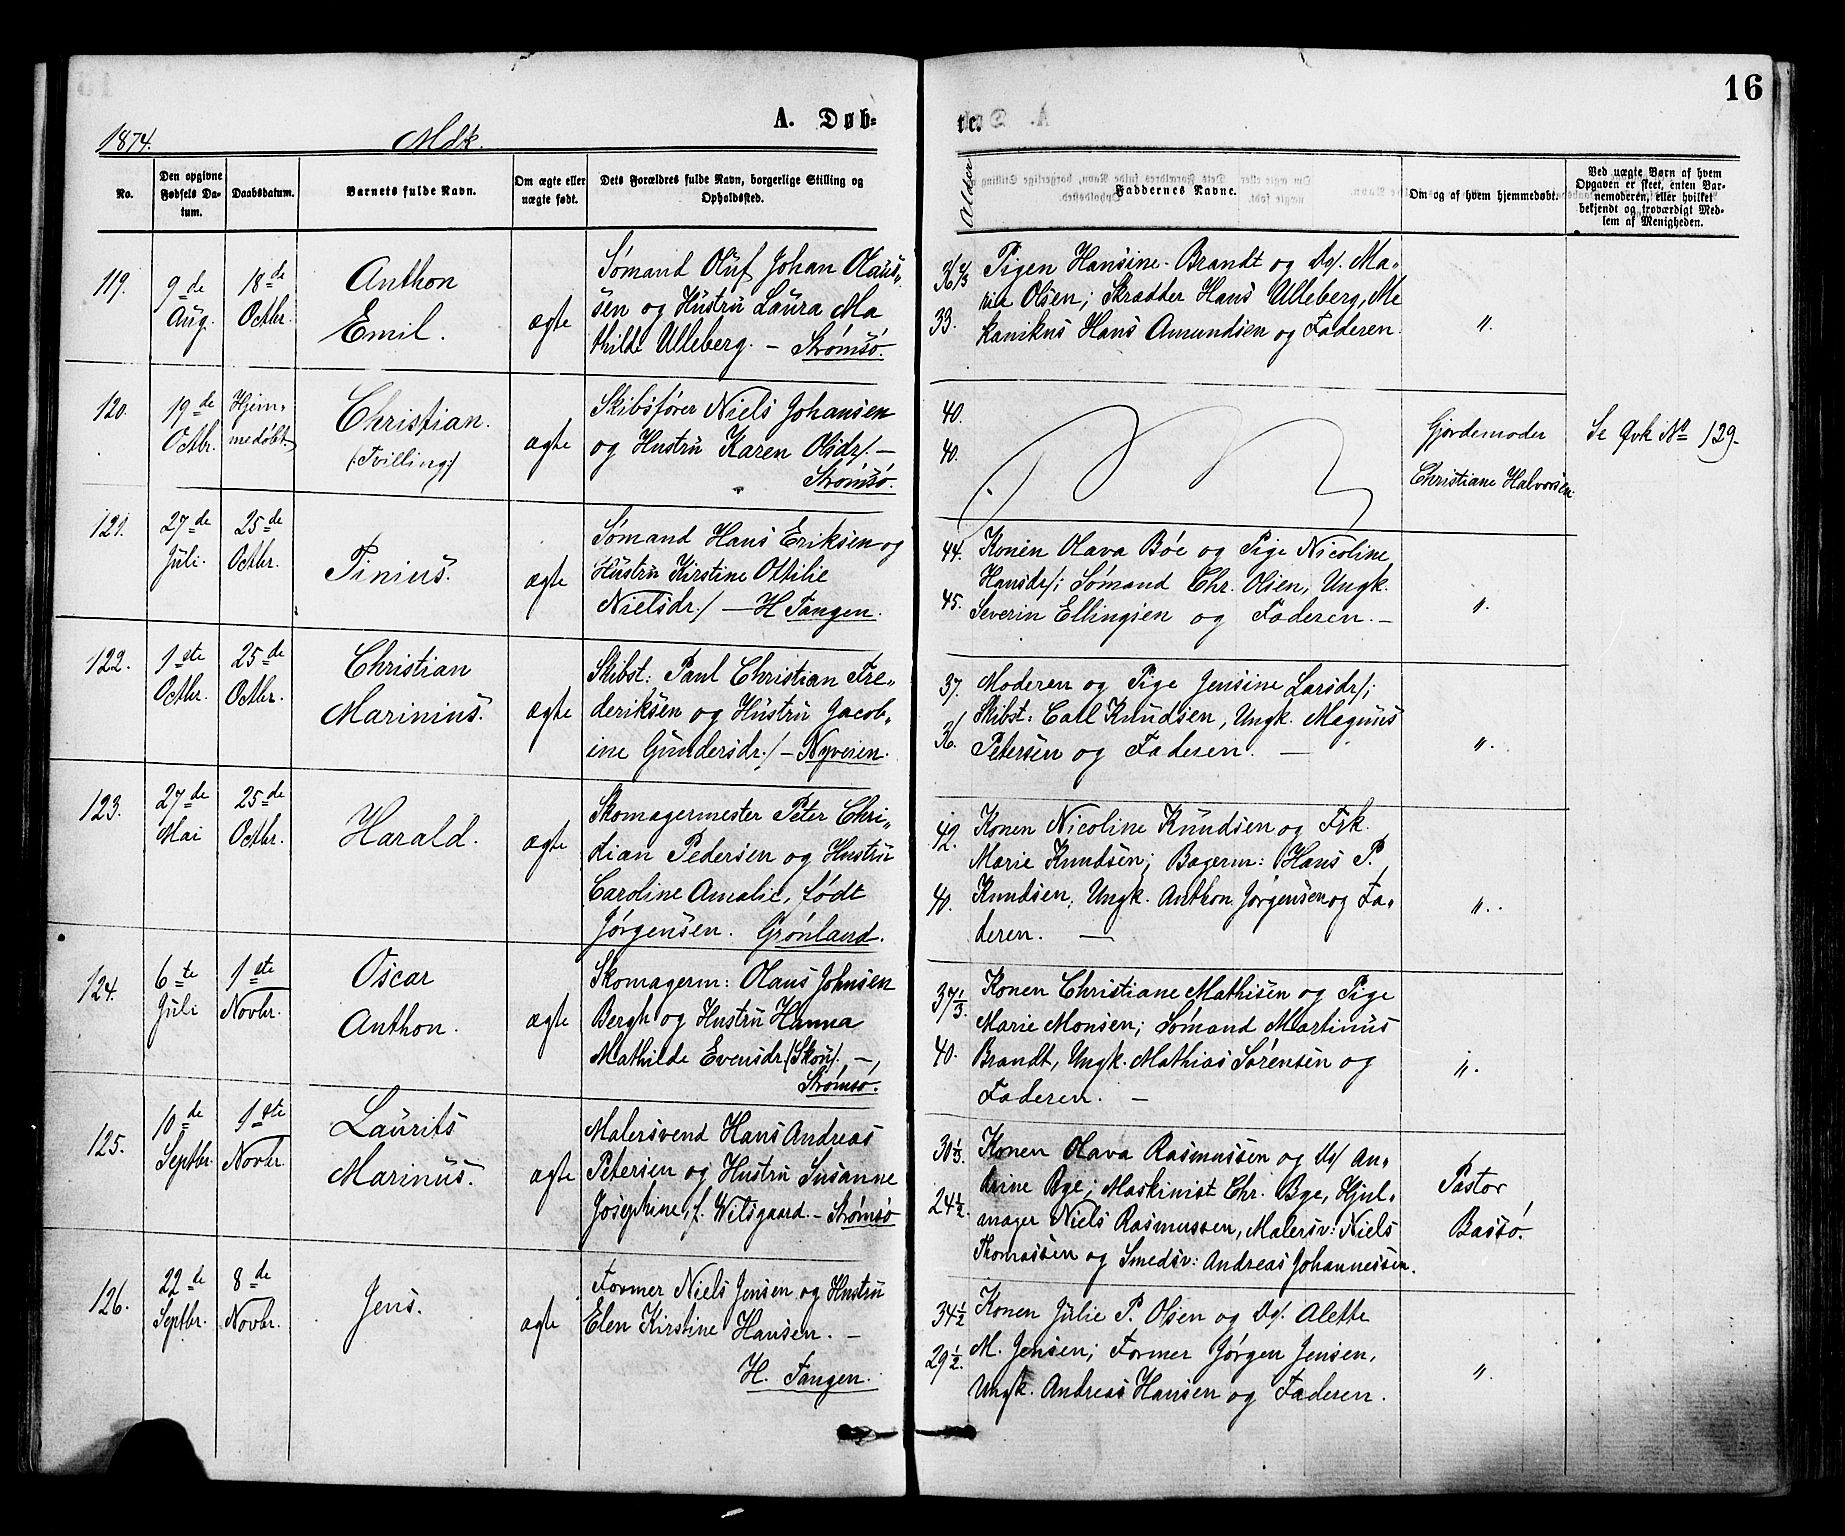 16
A. Døb-
te.
1874.
Mdk.
No.
Den opgivne Fødsels Da-
tum.
Daabsdatum.
Barnets fulde Navn.
Om ægte eller
uægte født.
Dets Forældres fulde Navn, borgerlige Stilling og
Opholdssted.
Alder
Faddernes Navne.
Om og af hvem hjemmedøbt.
Ved uægte Børn af hvem
Opgaven er skeet, enten Bar-
nemoderen, eller hvilket
bekjendt og troværdigt Med-
lem af Menigheden.
119.
9de
Aug.
18de
Octbr.
Anthon
Emil.
ægte
Sømand Oluf Johan Olaus-
sen og Hustru Laura Ma
thilde Ulleberg. – Strømsø.
36 2/3
33.
Pigen Hansine Brandt og Do/. Ma-
ria Olsen; Skrædder Hans Ulleberg, Me
kanikus Hans Amundsen og Faderen.
"
120.
19de
Octbr.
Hjem-
medøbt
Christian.
(Tvilling)
ægte
Skibsfører Niels Johansen
og Hustru Karen Olsdr/. –
Strømsø.
40.
40.
Gjordemoder
Christiane Halvorsen
Se Qvk No 129.
121.
27de
Juli.
25de
Octbr.
Pinius.
ægte
Sømand Hans Eriksen og
Hustru Kirstine Ottilie
Nielsdr./ – H Tangen.
44.
45.
Konen Olava Bøe og Pige Nicoline
Hansdr/; Sømand Chr. Olsen, Ungk.
Severin Ellingsen og Faderen. –
"
122.
1ste
Octbr.
25de
Octbr.
Christian
Marinius.
ægte
Skibst: Paul Christian Fre-
deriksen og Hustru Jacob-
ine Gundersdr./ – Nyveien.
37.
36.
Moderen og Pige Jensine Larsdr/;
Skibst: Carl Knudsen, Ungk. Magnus
Petersen og Faderen. –
"
123.
27de
Mai
25de
Octbr.
Harald.
ægte
Skomagermester Peter Chri-
stian Pedersen og Hustru
Caroline Amalie, født
Jørgensen. Grønland.
42.
40.
Konen Nicoline Knudsen og Frk.
Marie Knudsen; Bagerm: Hans P.
Knudsen, Ungk. Anthon Jørgensen og Fa-
deren. –
"
124.
6te
Juli
1ste
Novbr.
Oscar
Anthon.
ægte
Skomagerm: Olaus Johnsen
Bergh og Hustru Hanna
Mathilde Evensdr/(Skou/. –,
Strømsø.
37 1/3
40.
Konen Christiane Mathisen og Pige
Marie Monsen; Sømand Martinus
Brandt, Ungk. Mathias Sørensen og
Faderen. –
"
125.
10de
Septbr.
1ste
Novbr.
Laurits
Marinus.
ægte
Malersvend Hans Andreas
Petersen og Hustru Susanne
Josephine, f. Wilsgaard. – Strømsø
30 1/3.
24 1/2.
Konen Olava Rasmussen og Do/ An-
drine Bye; Maskinist Chr. Bye, Hjul-
mager Niels Rasmussen, Malersv: Niels
Thomassen og Smedsv: Andreas Johannessen.
Pastor
Bassø.
126.
22de
Septbr.
8de
Novbr.
Jens.
ægte
Former Niels Jensen og Hustru
Elen Kirstine Hansen. –
H. Tangen.
34 1/2
29 1/2.
Konen Julie P. Olsen og Do/. Alette
M. Jensen; Former Jørgen Jensen,
Ungk. Andreas Hansen og Faderen.
"